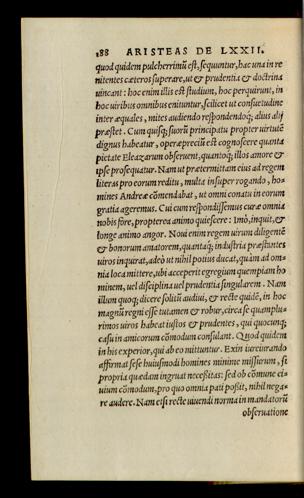 188 ARISTEAS DE LXXII.
quod quidem pulcherrimũ est, sequuntur, hac una in re
nitentes cæteros superare, ut & prudentia & doctrina
uincant: hoc enim illis est studium, hoc perquirunt, in
hoc uiribus omnibus enituntur, scilicet ut consuetudine
inter æquales, mites audiendo respondendoq́; alius alij
præstet. Cum quisq; suorũ principatu propter uirtutẽ
dignus habeatur, operæpreciũ est cognoscere quanta
pietate Eleazarum obseruent, quantoq́; illos amore &
ipse prosequatur. Nam ut prætermittam eius ad regem
literas pro eorum reditu, multa insuper rogando, ho-
mines Andreæ cõmendabat, ut omni conatu in eorum
gratia ageremus. Cui cum respondissemus curæ omnia
nobis fore, propterea animo quiescere: Imò, inquit, &
longe animo angor. Noui enim regem uirum diligentẽ
& bonorum amatorem, quantaq́; industria præstantes
uiros inquirat, adeò ut nihil potius ducat, quàm ad om-
nia loca mittere, ubi acceperit egregium quempiam ho
minem, uel disciplina uel prudentia singularem. Nam
illum quoq; dicere solitũ audiui, & recte quidẽ, in hoc
magnũ regni esse tutamen & robur, circa se quamplu-
rimos uiros habeat iustos & prudentes, qui quocunq;
casu in amicorum cõmodum consulant. Quod quidem
in his experior, qui ab eo mittuntur. Exin iureiurando
affirmat sese huiusmodi homines minime missurum, si
propria quædam ingruat necessitas: sed ob cõmune ci-
uium cõmodum, pro quo omnia pati possit, nihil nega-
re audere. Nam etsi recte uiuendi norma in mandatorũ
obseruatione